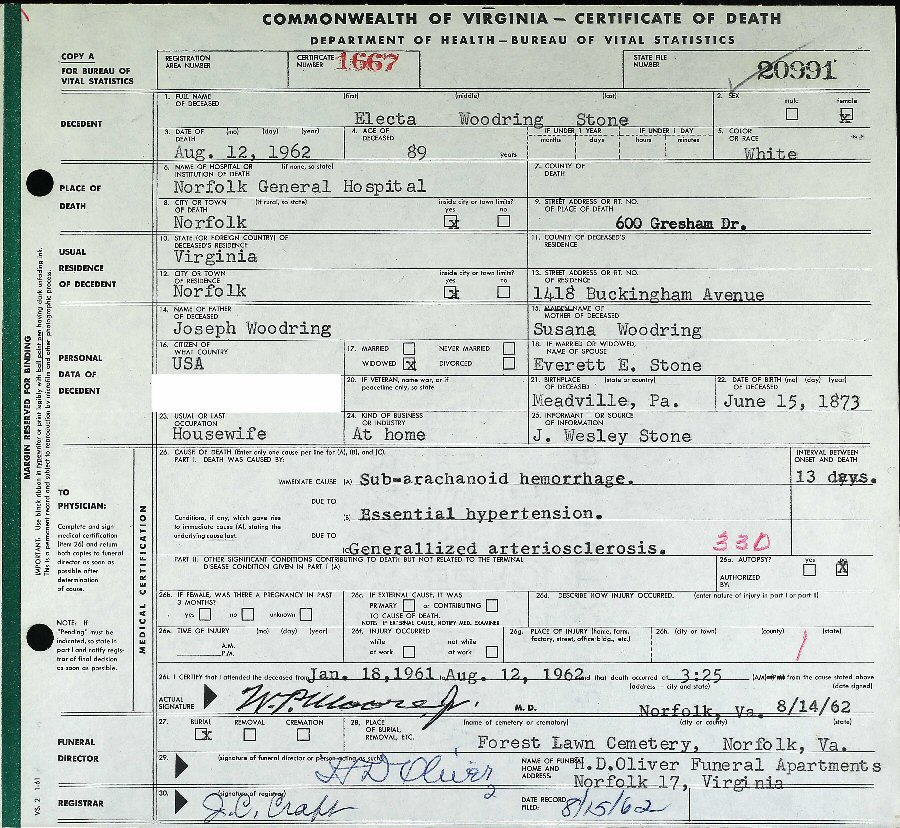 COMMONWEALTH OF VIRGINIA — CERTIFICATE OF DEATH
DEPARTMENT OF HEALTH — BUREAU OF VITAL STATISTICS
COPY A
FOR BUREAU OF
VITAL STATISTICS
REGISTRATION
AREA NUMBER
CERTIFICATE
NUMBER 1667
STATE FILE
NUMBER
20991
DECEDENT
1. FULL NAME
OF DECEASED
(first) (middle) (last)
Electa Woodring Stone
2. SEX
male female
x
3. DATE OF (mo) (day) (year)
DEATH
Aug. 12, 1962
4. AGE OF
DECEASED
89 years
IF UNDER 1 YEAR
months days
IF UNDER 1 DAY
hours minutes
5. COLOR
OR RACE
White
PLACE OF
DEATH
6. NAME OF HOSPITAL OR (if none, so state)
INSTITUTION OF DEATH
Norfolk General Hospital
7. COUNTY OF
DEATH
8. CITY OR TOWN (if rural, so state)
OF DEATH
Norfolk
inside city or town limits?
yes no
x
9. STREET ADDRESS OR RT. NO.
OF PLACE OF DEATH
600 Gresham Dr.
USUAL
RESIDENCE
OF DECEDENT
10. STATE (OR FOREIGN COUNTRY) OF
DECEASED'S RESIDENCE
Virginia
11. COUNTY OF DECEASED'S
RESIDENCE
12. CITY OR TOWN
OF RESIDENCE
Norfolk
inside city or town limits?
yes no
x
13. STREET ADDRESS OR RT. NO.
OF RESIDENCE
1418 Buckingham Avenue
PERSONAL
DATA OF
DECEDENT
14. NAME OF FATHER
OF DECEASED
Joseph Woodring
15. MAIDEN NAME OF
MOTHER OF DECEASED
Susana Woodring
16. CITIZEN OF
WHAT COUNTRY
USA
17. MARRIED NEVER MARRIED
WIDOWED x DIVORCED
18. IF MARRIED OR WIDOWED,
NAME OF SPOUSE
Everett E. Stone
20. IF VETERAN, name war, or if
peacetime only, so state
21. BIRTHPLACE (state or country)
OF DECEASED
Meadville, Pa.
22. DATE OF BIRTH (mo) (day) (year)
OF DECEASED
June 15, 1873
23. USUAL OR LAST
OCCUPATION
Housewife
24. KIND OF BUSINESS
OR INDUSTRY
At home
25. INFORMANT OR SOURCE
OF INFORMATION
J. Wesley Stone
MARGIN RESERVED FOR BINDING
IMPORTANT: Use black ribbon in typewriter or print legibly with ball point pen having dark unfading ink.
This is a permanent record and subject to reproduction by microfilm and other photographic process.
MEDICAL CERTIFICATION
TO
PHYSICIAN:
Complete and sign
medical certification
(item 26) and return
both copies to funeral
director as soon as
possible after
determination
of cause.
NOTE: If
"Pending" must be
indicated, so state in
part I and notify regis-
trar of final decision
as soon as possible.
26. CAUSE OF DEATH (Enter only one cause per line for (A), (B), and (C).
PART I. DEATH WAS CAUSED BY:
INTERVAL BETWEEN
ONSET AND DEATH
IMMEDIATE CAUSE (A) Sub-arachanoid hemorrhage.
13 days.
DUE TO
Conditions, if any, which gave rise
to immediate cause (A), stating the
underlying cause last.
(B) Essential hypertension.
DUE TO
(C) Generallized arteriosclerosis.
330
PART II. OTHER SIGNIFICANT CONDITIONS CONTRIBUTING TO DEATH BUT NOT RELATED TO THE TERMINAL
DISEASE CONDITION GIVEN IN PART I (A)
26a. AUTOPSY? yes
X
AUTHORIZED
BY:
26b. IF FEMALE, WAS THERE A PREGNANCY IN PAST
3 MONTHS?
yes no unknown
26c. IF EXTERNAL CAUSE, IT WAS
PRIMARY or CONTRIBUTING
TO CAUSE OF DEATH.
NOTE: IF EXTERNAL CAUSE, NOTIFY MED. EXAMINER
26d. DESCRIBE HOW INJURY OCCURRED. (enter nature of injury in part I or part II)
26e. TIME OF INJURY (mo) (day) (year)
A.M.
P.M.
26f. INJURY OCCURRED
while at work
not while at work
26g. PLACE OF INJURY (home, farm,
factory, street, office bldg., etc.)
26h. (city or town) (county) (state)
26i. I CERTIFY that I attended the deceased from Jan. 18,1961 to Aug. 12, 1962 and that death occurred at 3:25 (A.M.) from the cause stated above
(address - city and state) (date signed)
ACTUAL
SIGNATURE
W.P. Moore Jr.
M. D.
Norfolk, Va. 8/14/62
FUNERAL
DIRECTOR
27. BURIAL REMOVAL CREMATION
x
28. PLACE
OF BURIAL,
REMOVAL, ETC.
(name of cemetery or crematory) (city or county) (state)
Forest Lawn Cemetery, Norfolk, Va.
29. (signature of funeral director or person acting as such)
H D Oliver
NAME OF FUNERAL
HOME AND
ADDRESS
H.D.Oliver Funeral Apartments
Norfolk 17, Virginia
REGISTRAR
30. (signature of registrar)
J.C. Craft
DATE RECORD
FILED:
8/15/62
VS. 2 1-61